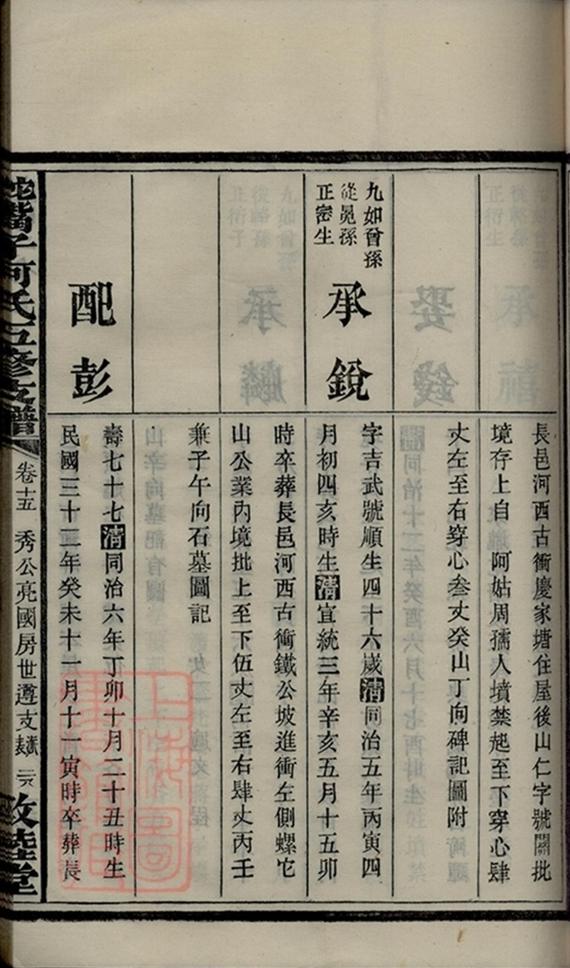 長邑河西古衝慶家塘住屋後山仁字號鬮批
境存上自 阿姑周孺人墳禁起至下穿心肆
丈左至右穿心叁丈癸山丁向碑記圖附
九如曾孫
從冕孫
正密生
承銳
字吉武號順生四十六歲清同治五年丙寅四
月初四亥時生清宣統三年辛亥五月十五卯
時卒葬長邑河西古衝鐵公坡進衝左側螺它
山公業內境批上至下伍丈左至右肆丈丙壬
兼子午向石墓圖記
配彭
壽七十七清同治六年丁卯十月二十五時生
民國三十二年癸未十一月十一寅時卒葬長
河氏五修支譜
卷十五
秀公亮國房世遵支
敦睦堂